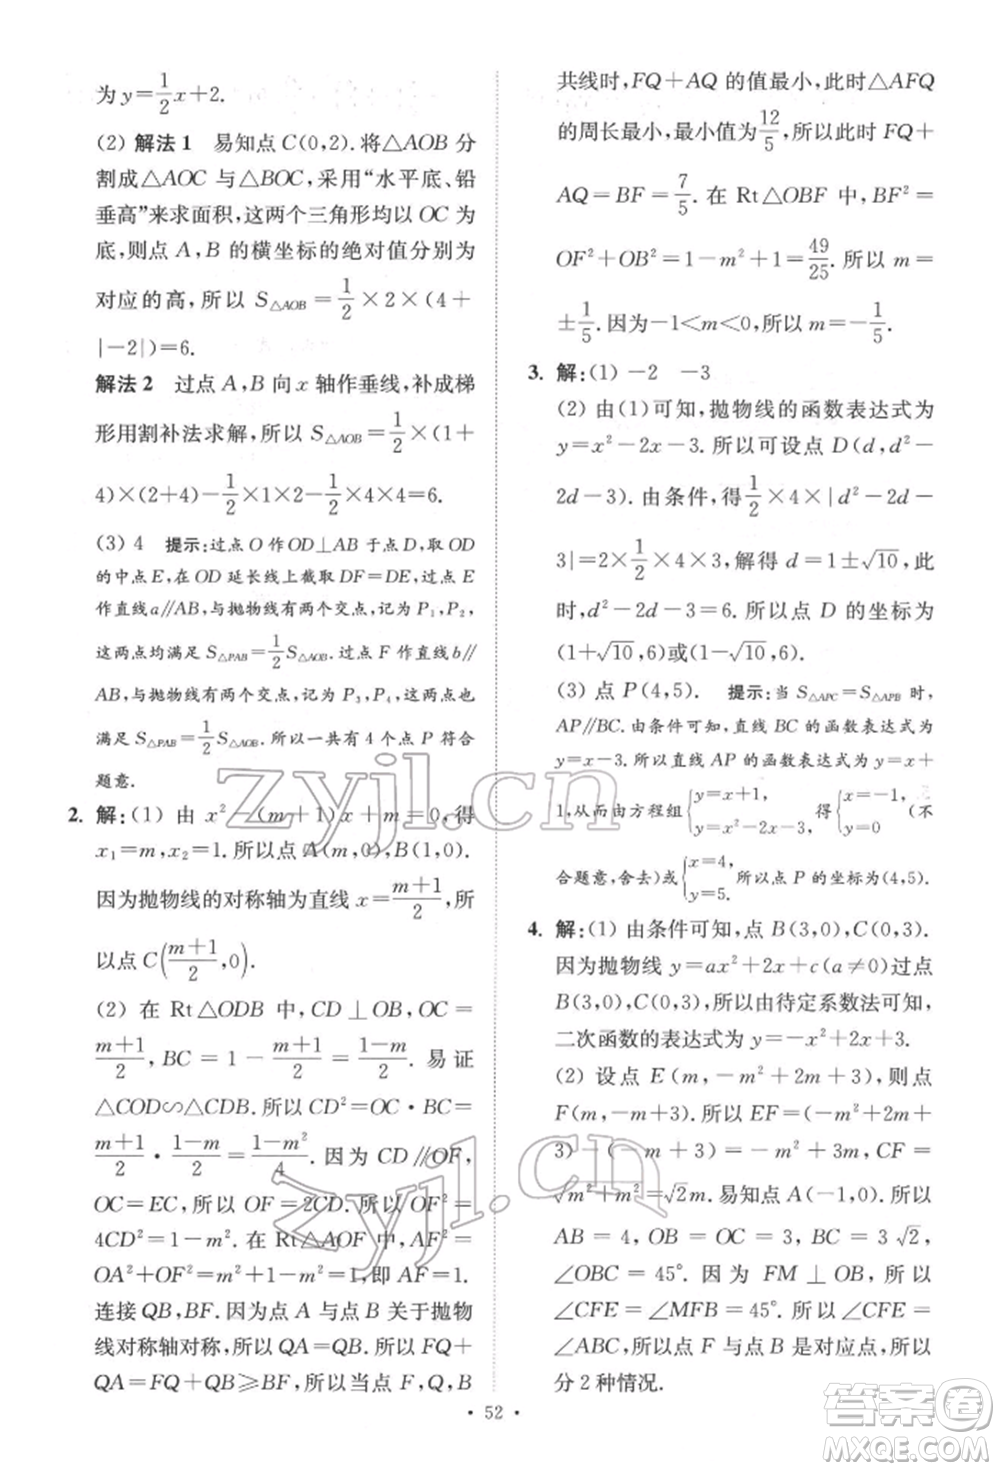 为 y=1/2x+2.
(2) 解法 1 易知点 C(0,2). 将△AOB 分
割成△AOC 与△BOC,采用“水平底、铅
垂高”来求面积,这两个三角形均以 OC 为
底,则点 A,B 的横坐标的绝对值分别为
对应的高,所以 S△AOB=1/2×2×(4+
|-2|)=6.
解法 2 过点 A,B 向 x 轴作垂线,补成梯
形用割补法求解,所以 S△AOB=1/2×(1+
4)×(2+4)-1/2×1×2-1/2×4×4=6.
(3) 4 提示:过点 O 作 OD⊥AB 于点 D,取 OD
的中点 E,在 OD 延长线上截取 DF=DE,过点 E
作直线 a∥AB,与抛物线有两个交点,记为 P₁,P₂,
这两点均满足 S△PAB=1/2S△AOB.过点 F 作直线 b∥
AB,与抛物线有两个交点,记为 P₃,P₄,这两点也
满足 S△PAB=1/2S△AOB.所以一共有 4 个点 P 符合
题意.
2. 解:(1) 由 x²-(m+1)x+m=0,得
x₁=m,x₂=1.所以点 A(m,0),B(1,0).
因为抛物线的对称轴为直线 x=(m+1)/2,所
以点 C((m+1)/2,0).
(2) 在 Rt△ODB 中,CD⊥OB,OC=
(m+1)/2,BC=1-(m+1)/2=(1-m)/2.易证
△COD∽△CDB.所以 CD²=OC·BC=
(m+1)/2·(1-m)/2=(1-m²)/4.因为 CD∥OF,
OC=EC,所以 OF=2CD.所以 OF²=
4CD²=1-m².在 Rt△AOF 中,AF²=
OA²+OF²=m²+1-m²=1,即 AF=1.
连接 QB,BF.因为点 A 与点 B 关于抛物
线对称轴对称,所以 QA=QB.所以 FQ+
QA=FQ+QB≥BF.所以当点 F,Q,B
共线时,FQ+AQ 的值最小,此时△AFQ
的周长最小,最小值为12/5,所以此时 FQ+
AQ=BF=7/5.在 Rt△OBF 中,BF²=
OF²+OB²=1-m²+1=49/25.所以 m=
±1/5.因为-1<m<0,所以 m=-1/5.
3. 解:(1) -2 -3
(2) 由(1)可知,抛物线的函数表达式为
y=x²-2x-3.所以可设点 D(d,d²-
2d-3).由条件,得1/2×4×|d²-2d-
3|=2×1/2×4×3,解得 d=1±√10,此
时,d²-2d-3=6.所以点 D 的坐标为
(1+√10,6)或(1-√10,6).
(3) 点 P(4,5). 提示:当 S△APC=S△APB 时,
AP∥BC.由条件可知,直线 BC 的函数表达式为
y=x-3,所以直线 AP 的函数表达式为 y=x+
1,从而由方程组{y=x+1, y=x²-2x-3, 得{x=-1, y=0 (不
合题意,舍去)或{x=4, y=5. 所以点 P 的坐标为(4,5).
4. 解:(1) 由条件可知,点 B(3,0),C(0,3).
因为抛物线 y=ax²+2x+c(a≠0)过点
B(3,0),C(0,3),所以由待定系数法可知,
二次函数的表达式为 y=-x²+2x+3.
(2) 设点 E(m,-m²+2m+3),则点
F(m,-m+3).所以 EF=(-m²+2m+
3)-(-m+3)=-m²+3m,CF=
√m²+m²=√2m.易知点 A(-1,0).所以
AB=4,OB=OC=3,BC=3√2,
∠OBC=45°.因为 FM⊥OB,所以
∠CFE=∠MFB=45°.所以∠CFE=
∠ABC,所以点 F 与点 B 是对应点,所以
分 2 种情况.
·52·
zyjl.cn
zyjl.cn
答案圈
MXQE.COM